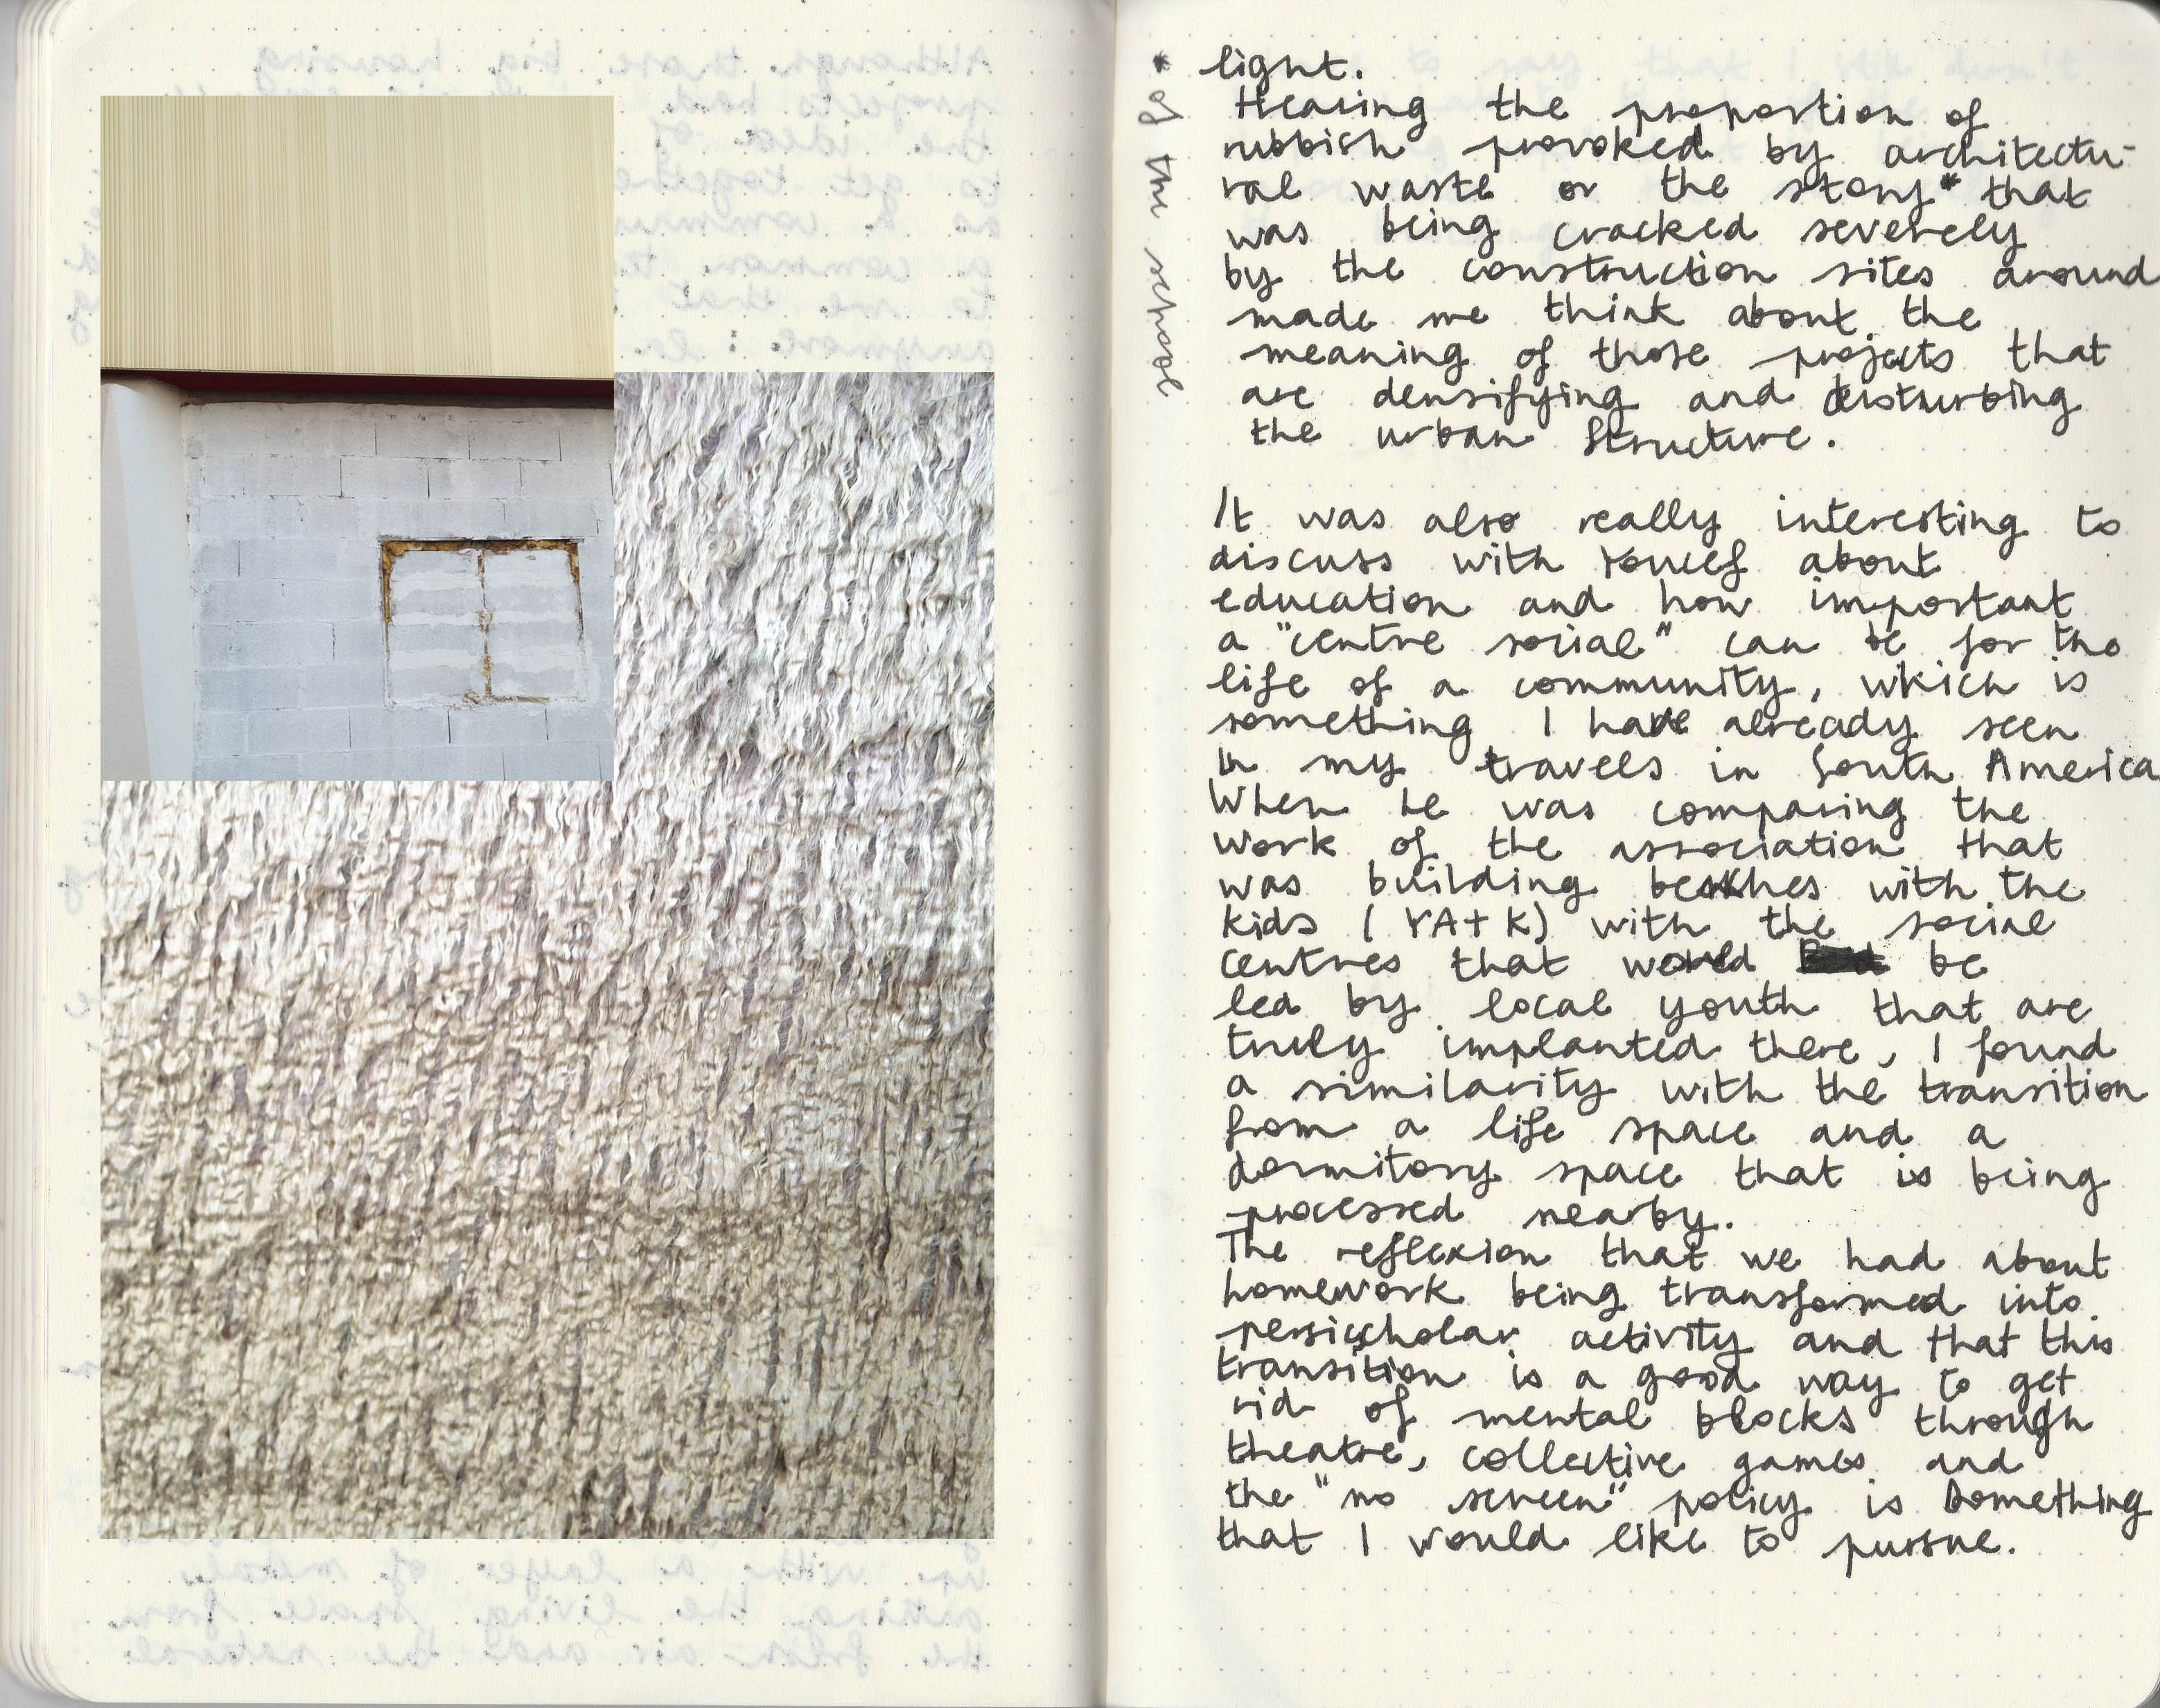 light.
Hearing the proportion of
rubbish provoked by architectu-
ral waste or the story* that
was being cracked severely
by the construction sites around
made me think about the
meaning of those projects that
are densifying and disturbing
the urban structure.
* of the school
It was also really interesting to
discuss with Youcef about
education and how important
a "centre social" can be for the
life of a community, which is
something I have already seen
in my travels in South America
When he was comparing the
work of the association that
was building benches with the
kids (YA+K) with the social
centres that would be
led by local youth that are
truly implanted there, I found
a similarity with the transition
from a life space and a
dormitory space that is being
processed nearby.
The reflexion that we had about
homework being transformed into
activity and that this
transition is a good way to get
rid of mental blocks through
theatre, collective games and
the "no screen" policy is something
that I would like to pursue.